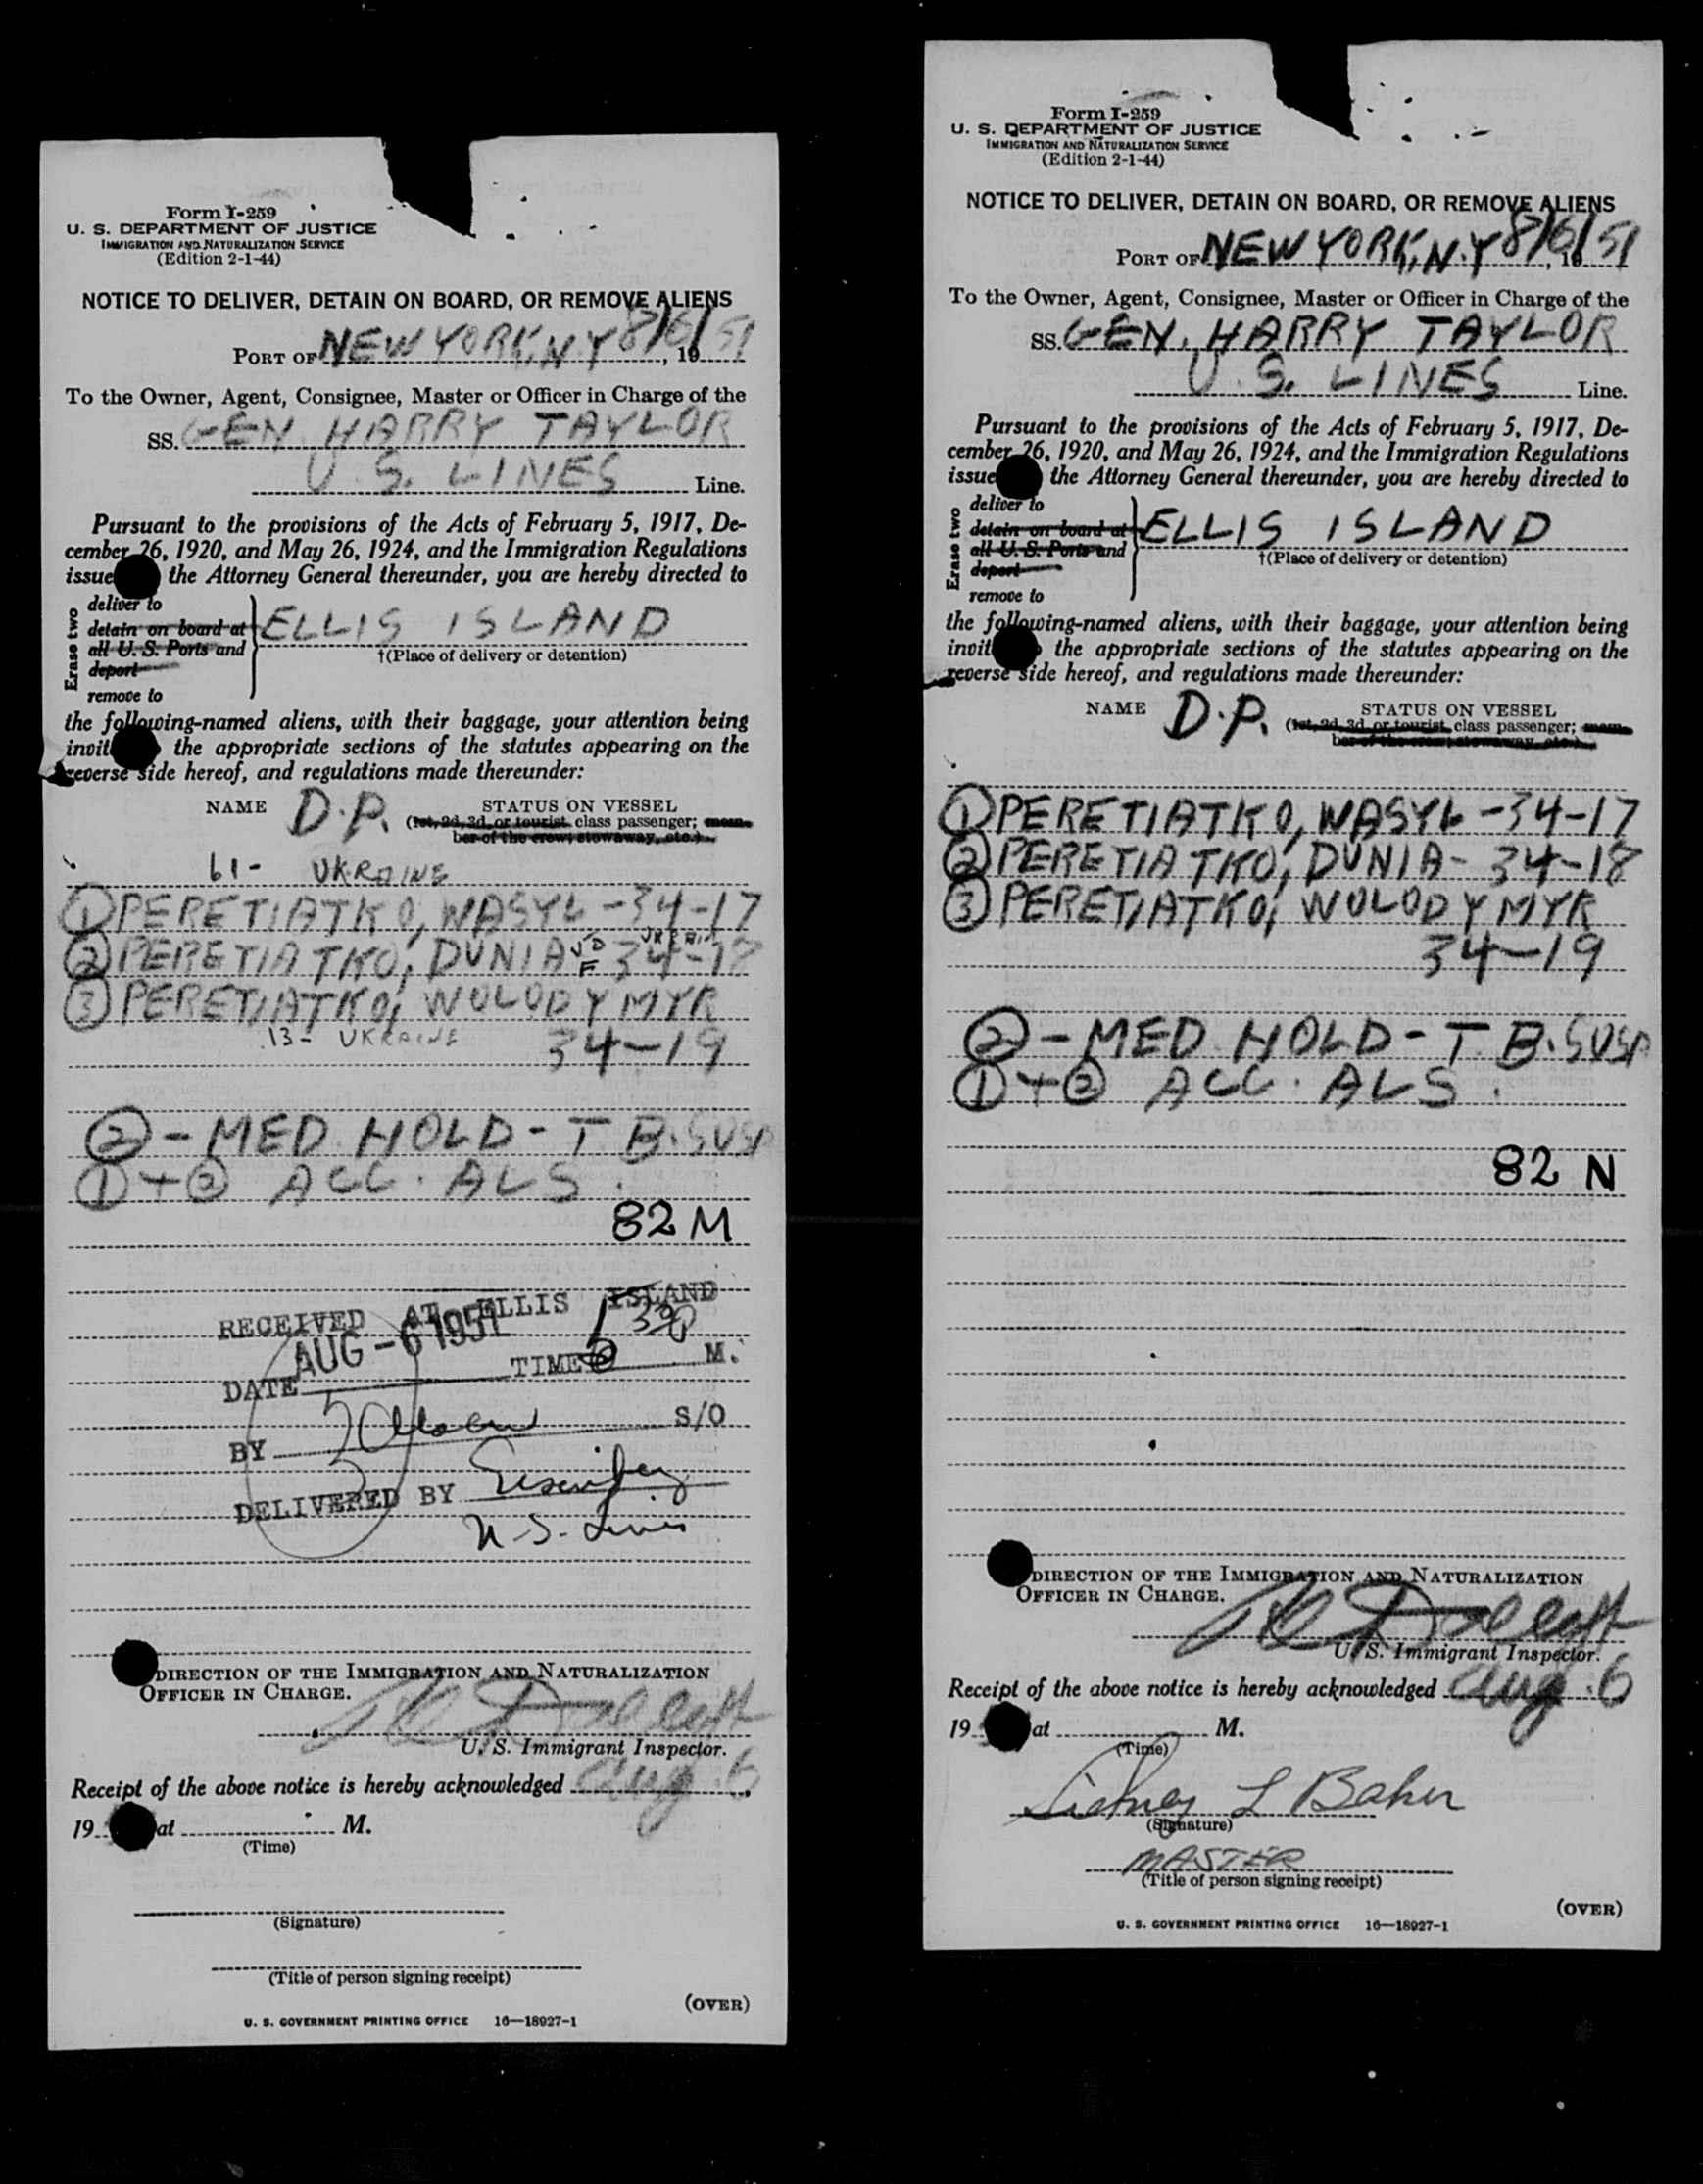 Form I-259
U. S. DEPARTMENT OF JUSTICE
IMMIGRATION AND NATURALIZATION SERVICE
(Edition 2-1-44)
NOTICE TO DELIVER, DETAIN ON BOARD, OR REMOVE ALIENS
PORT OF NEW YORK, N.Y 8/6/51, 19
To the Owner, Agent, Consignee, Master or Officer in Charge of the
SS. GEN. HARRY TAYLOR
U.S. LINES Line.
Pursuant to the provisions of the Acts of February 5, 1917, De-
cember 26, 1920, and May 26, 1924, and the Immigration Regulations
issue the Attorney General thereunder, you are hereby directed to
Erase two
deliver to
detain on board at
all U. S. Ports and
deport
remove to
ELLIS ISLAND
†(Place of delivery or detention)
the following-named aliens, with their baggage, your attention being
invit the appropriate sections of the statutes appearing on the
reverse side hereof, and regulations made thereunder:
NAME D.P. STATUS ON VESSEL
(1st, 2d, 3d, or tourist class passenger; mem-
ber of the crew; stowaway, etc.)
61- UKRAINE
① PERETIATKO, WASYL - 34-17
② PERETIATKO, DUNIA 34-18
③ PERETIATKO, WOLODYMYR
13- UKRAINE 34-19
② - MED. HOLD - T.B. SUSP
① + ② ACC. ALS.
82 M
RECEIVED AT ELLIS ISLAND
DATE AUG - 6 1951 TIME M.
BY S/O
DELIVERED BY
U.S. Lines
DIRECTION OF THE IMMIGRATION AND NATURALIZATION
OFFICER IN CHARGE.
U. S. Immigrant Inspector.
Receipt of the above notice is hereby acknowledged Aug. 6,
19 at M.
(Time)
(Signature)
(Title of person signing receipt)
(OVER)
U. S. GOVERNMENT PRINTING OFFICE 16—18927-1
Form I-259
U. S. DEPARTMENT OF JUSTICE
IMMIGRATION AND NATURALIZATION SERVICE
(Edition 2-1-44)
NOTICE TO DELIVER, DETAIN ON BOARD, OR REMOVE ALIENS
PORT OF NEW YORK, N.Y 8/6/51, 19
To the Owner, Agent, Consignee, Master or Officer in Charge of the
SS. GEN. HARRY TAYLOR
U.S. LINES Line.
Pursuant to the provisions of the Acts of February 5, 1917, De-
cember 26, 1920, and May 26, 1924, and the Immigration Regulations
issue the Attorney General thereunder, you are hereby directed to
Erase two
deliver to
detain on board at
all U. S. Ports and
deport
remove to
ELLIS ISLAND
†(Place of delivery or detention)
the following-named aliens, with their baggage, your attention being
invit the appropriate sections of the statutes appearing on the
reverse side hereof, and regulations made thereunder:
NAME D.P. STATUS ON VESSEL
(1st, 2d, 3d, or tourist class passenger; mem-
ber of the crew; stowaway, etc.)
① PERETIATKO, WASYL - 34-17
② PERETIATKO, DUNIA - 34-18
③ PERETIATKO, WOLODYMYR
34-19
② - MED. HOLD - T.B. SUSP
① + ② ACC. ALS.
82 N
DIRECTION OF THE IMMIGRATION AND NATURALIZATION
OFFICER IN CHARGE.
U. S. Immigrant Inspector.
Receipt of the above notice is hereby acknowledged Aug. 6
19 at M.
(Time)
Sidney L Baker
(Signature)
MASTER
(Title of person signing receipt)
(OVER)
U. S. GOVERNMENT PRINTING OFFICE 16—18927-1